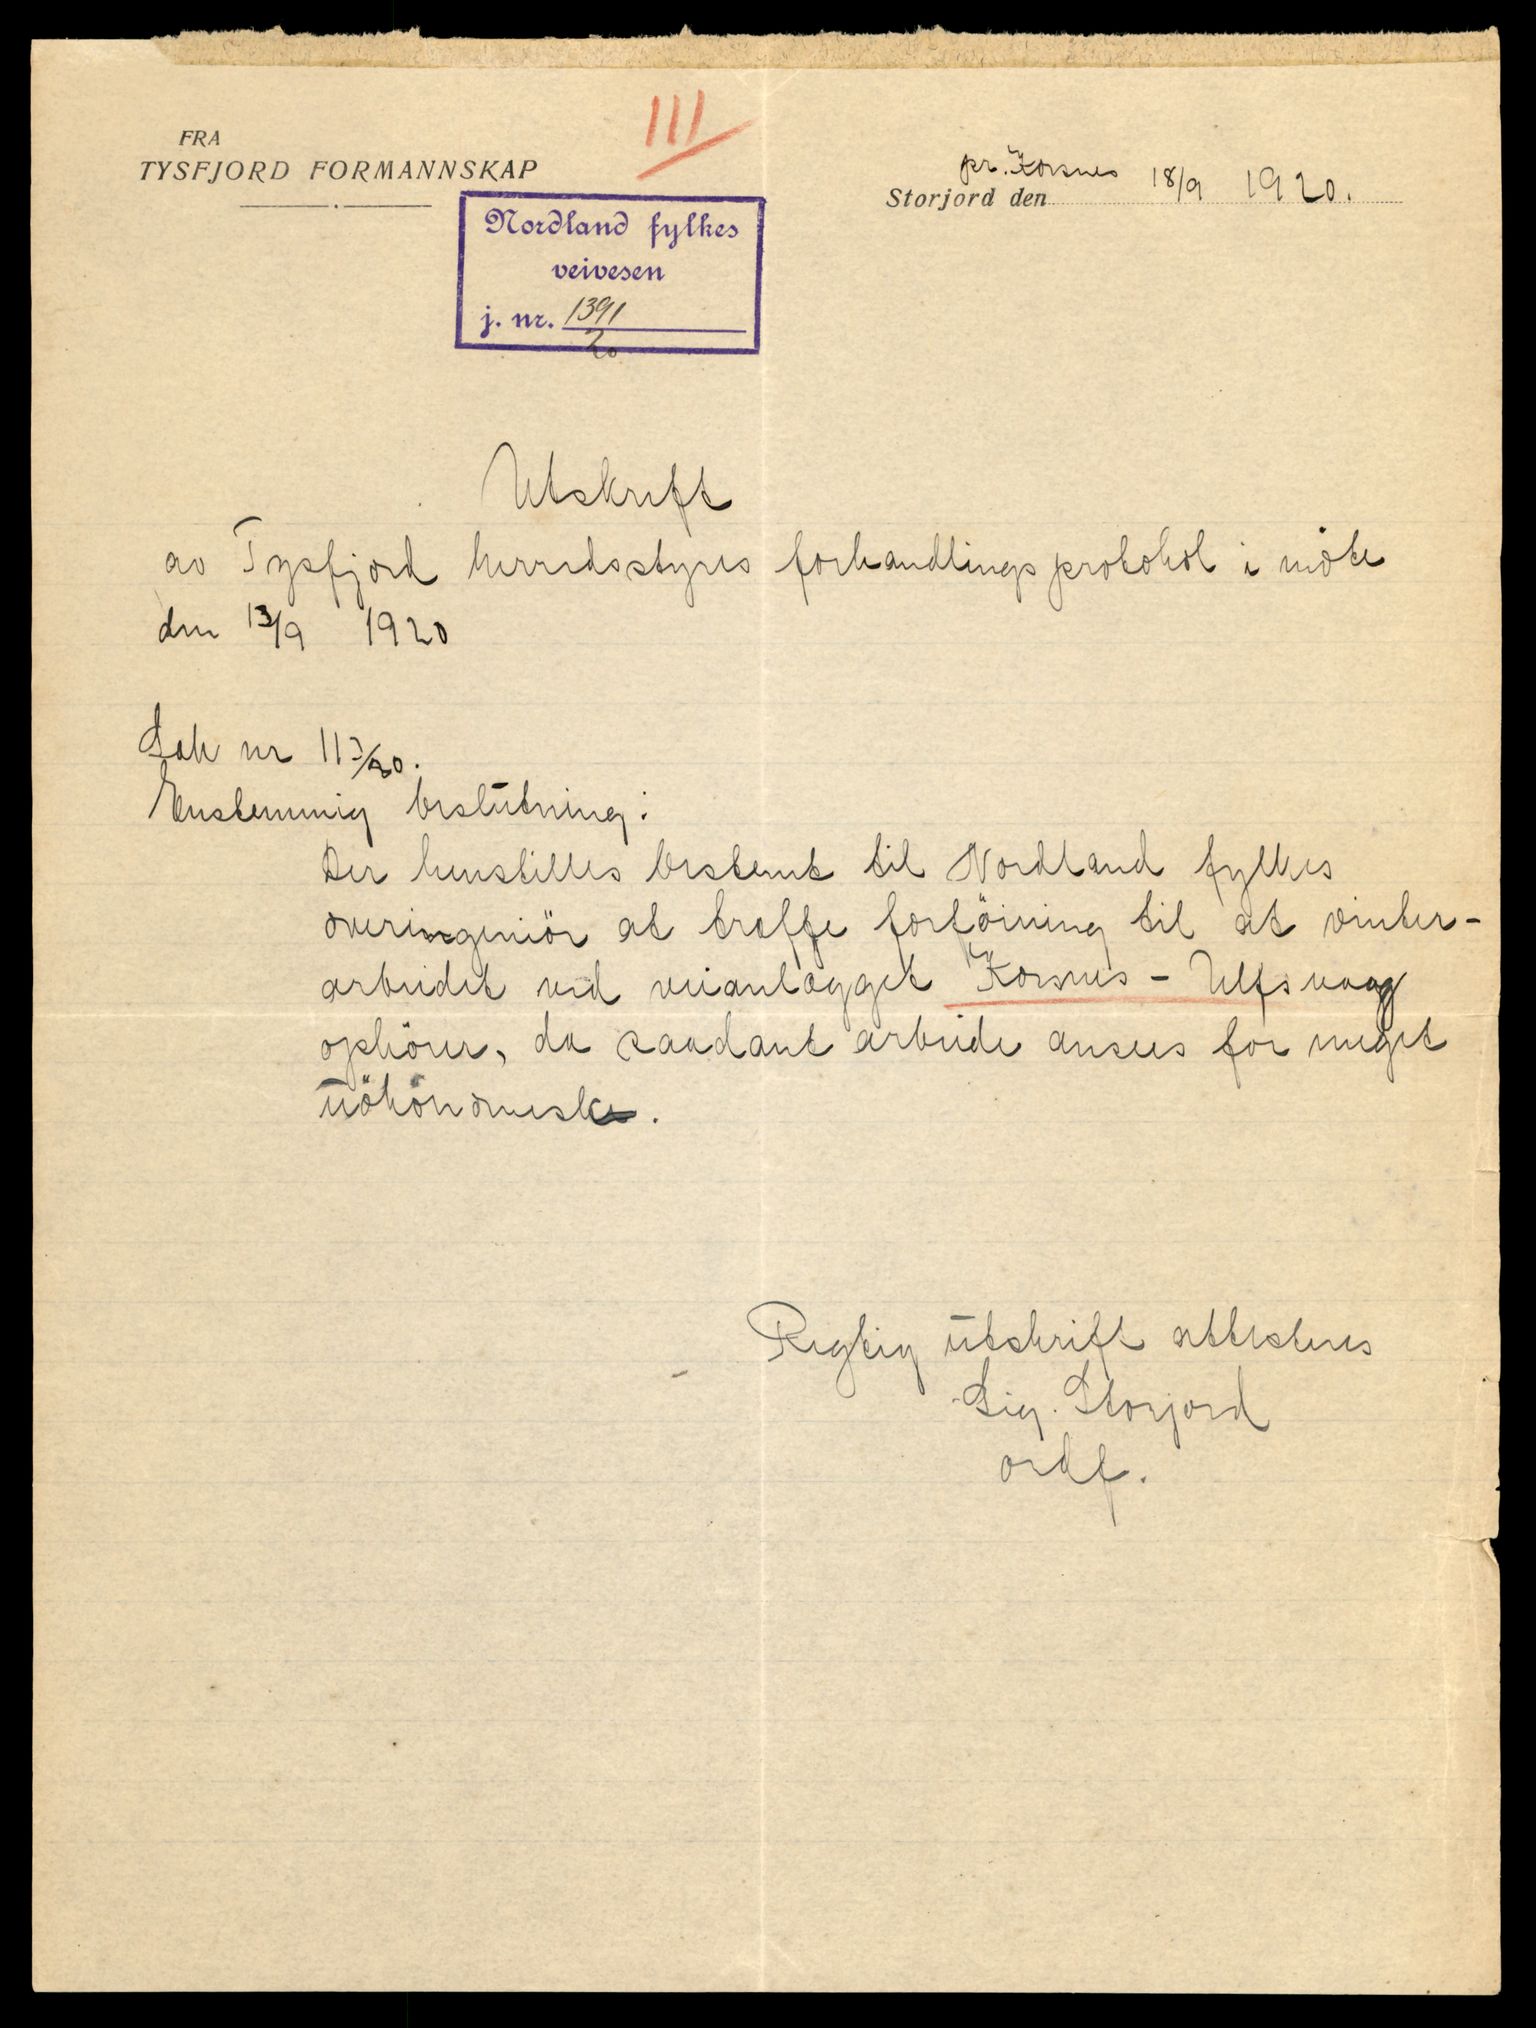 III
FRA
TYSFJORD FORMANNSKAP
pr. Korsnes
Storjord den 18/9 1920.
Nordland fylkes
veivesen
j. nr. 1391
20
Utskrift
av Tysfjord herredsstyres forhandlingsprotokol i møte
den 13/9 1920
Sak nr 113/20.
Enstemmig beslutning:
Der henstilles bestemt til Nordland fylkes
overingeniör at træffe forföining til at vinter-
arbeidet ved veianlægget Korsnes - Ulfsvaag
ophörer, da saadant arbeide ansees for meget
uökonomisk.
Rigtig utskrift attesteres
Sig. Storjord
ordf.